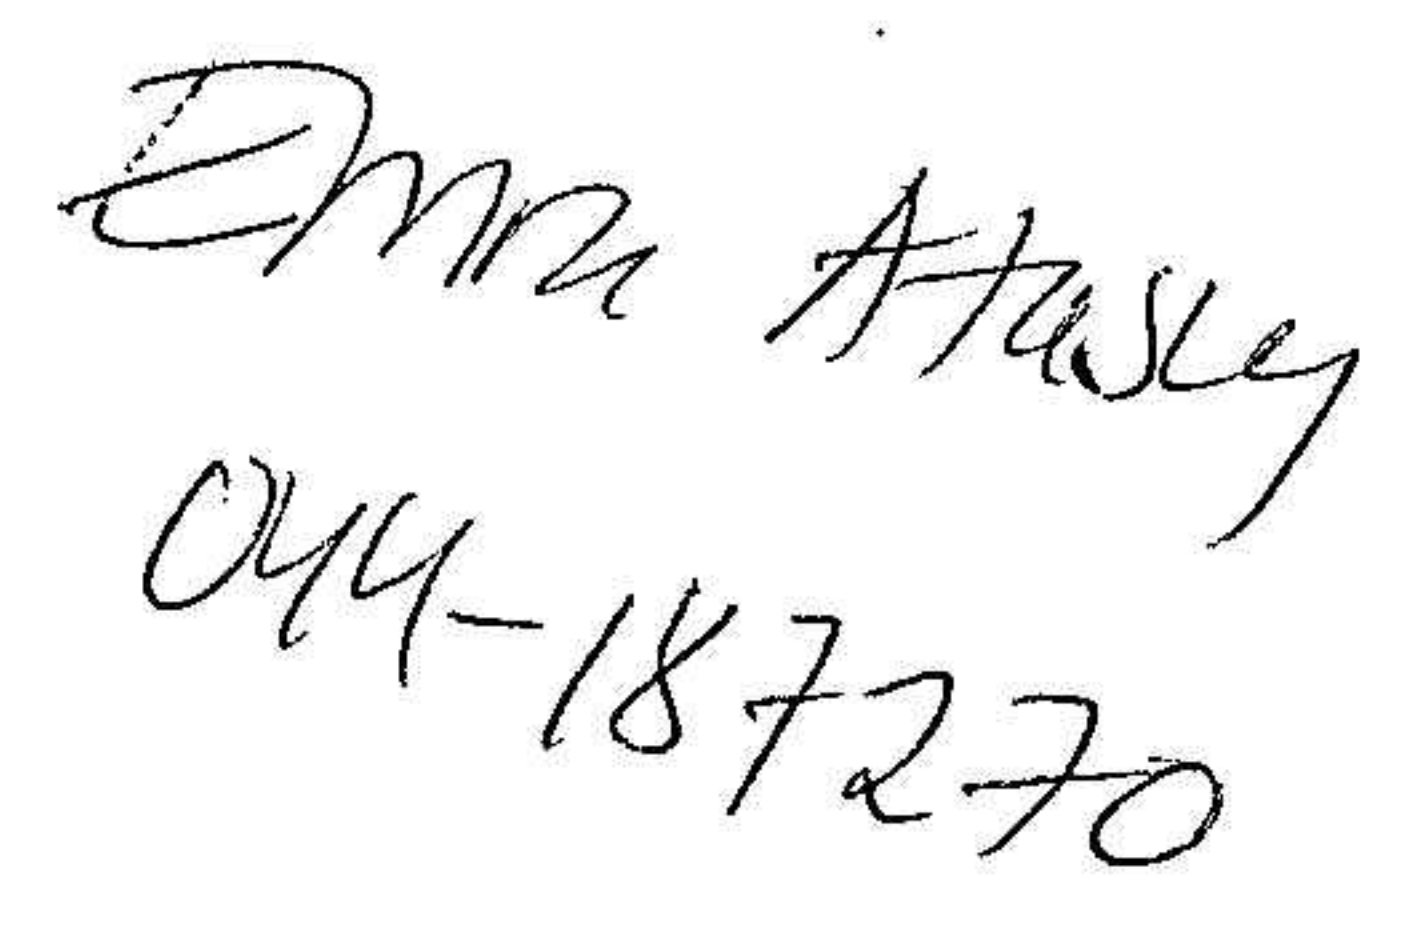 Emra Atasley
044-187270